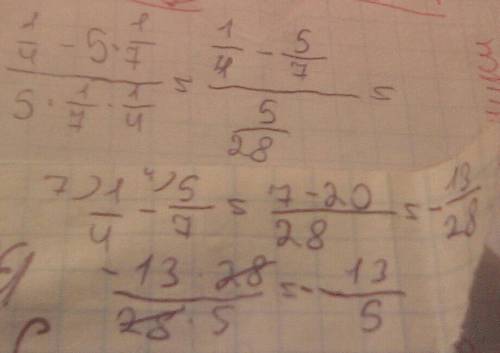 (1/4 - 5 · 1/7) / (5 · 1/7 · 1/4) = (1/4 - 5/7) / (5/28) =
7) 1/4 - 4) 5/7 = (7 - 20)/28 = - 13/28
(-13 · 28) / (28 · 5) = - 13/5